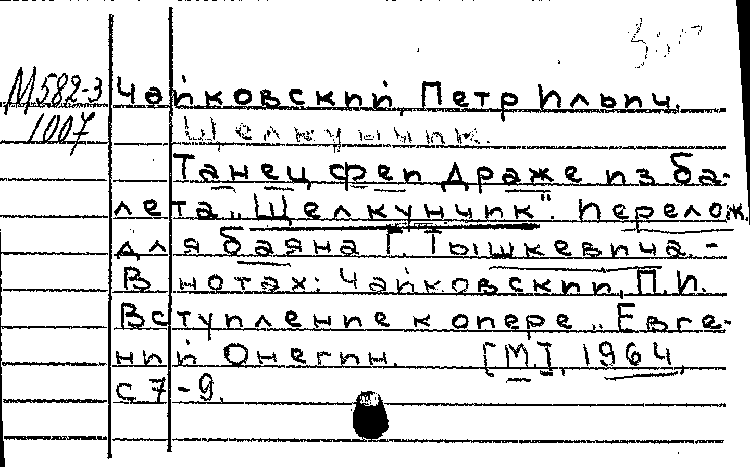 М582-3 Чайковский, Петр Ильич.
1007 Щелкунчик.
Танец феи Драже из ба-
лета „Щелкунчик". Перелож.
для баяна Г. Тышкевича. –
В нотах: Чайковский, П.И.
Вступление к опере „Евге-
ний Онегин. [М.], 1964,
с 7-9.